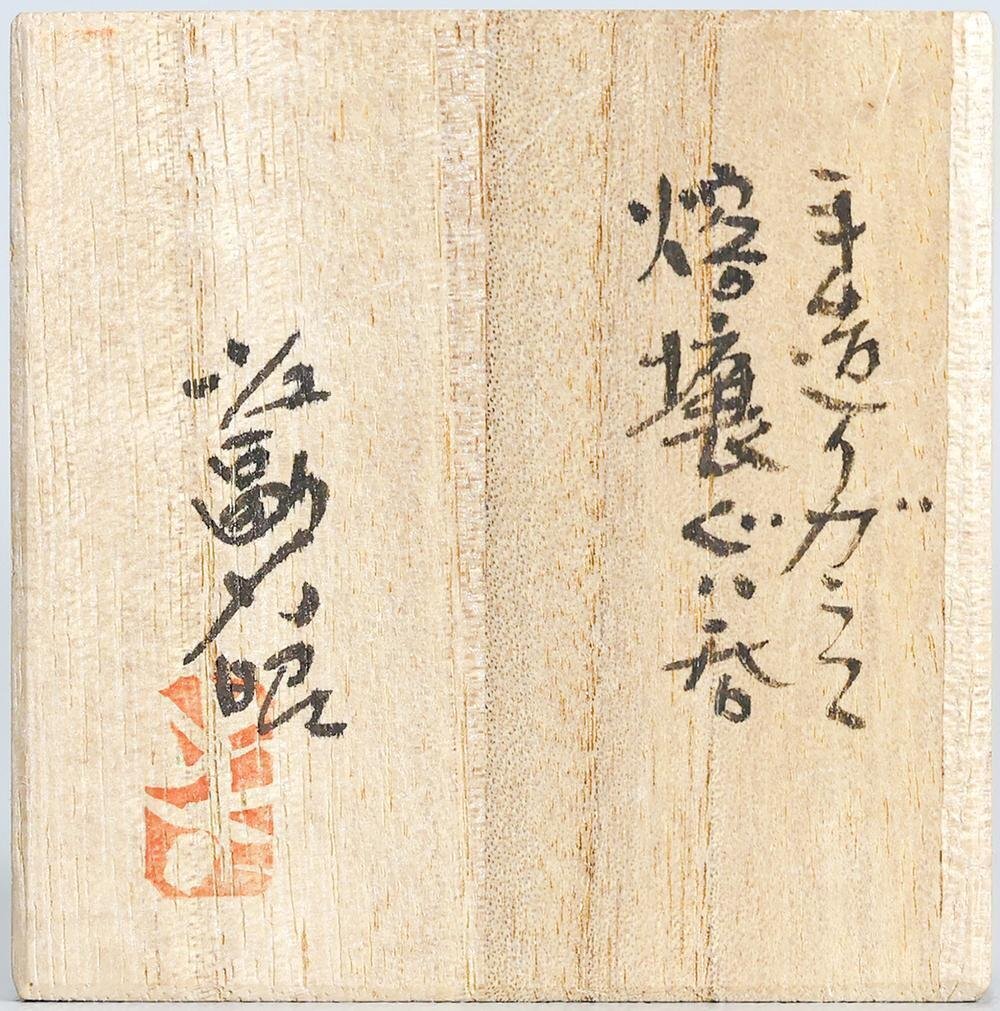 手造りガラス
熔壌ぐい呑
江副行昭